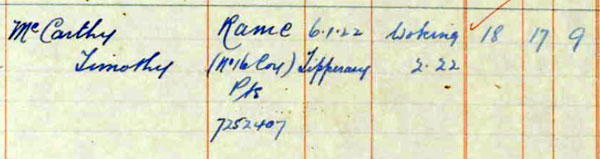 McCarthy RAMC 6.1.22 Woking 18 17 9
Timothy (No 16 Coy) Tipperary 2.22
Pte
7252407